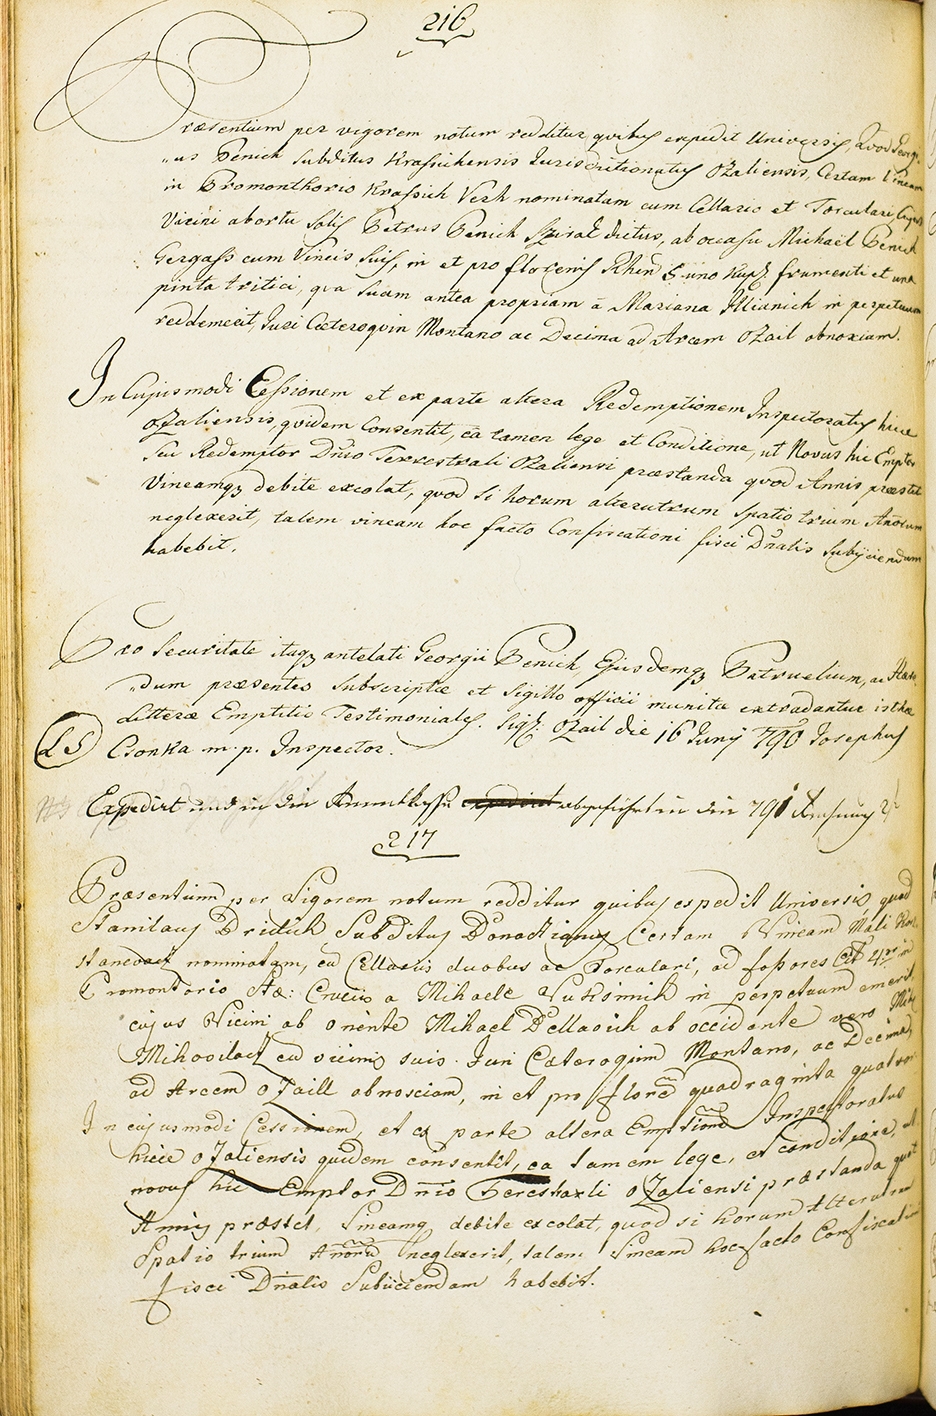 216
Præsentium per vigorem notum redditur quibus expedit Universis, Quod Georgi-
„us Benich subditus Krassichensis Jurisdictionatus Ozaliensis, Certam Vineam
in Promonthorio Krassich Verh nominatam cum Cellario et Torculari, Cujus
Vicini abortu solis Petrus Benich Sziral dictus, ab occasu Michaël Benich
Gergass cum Vineis suis, in et pro florenis Rhen 5 uno Kupl. frumenti et una
pinta tritici, qua suam antea propriam a Mariana Mianich in perpetuum
reddemerit, Juri Cæteroquin Montano ac Decima ad Arcem Ozail obnoxiam.
In Cujusmodi Cessionem et ex parte altera Redemptionem Inspectoratus hicce
Ozaliensis quidem Consentit, ea tamen lege et Conditione, ut Novus hic Emptor
seu Redemptor Dno Terrestrali Ozaliensi præstanda quod Annis præstet
Vineamqz debite excolat, quod si horum alterutrum spatio trium Anorum
neglexerit, talem vineam hoc facto Confiscationi fisci Dnalis subijciendam
habebit.
Pro securitate itaqz antelati Georgii Benich, Ejusdemqz Patruelium, ac Hære-
„dum præsentes subscriptæ et sigillo officii munitæ extradantur isthæ
Litteræ Emptitiæ Testimoniales. Sigl: Ozail die 16 Junÿ 790 Josephus
LS Csonka m. p. Inspector.
Expedirt und in die 791
217
Præsentium per Vigorem notum redditur quibus expedit Universis quod
Stanilaus Dridich Subditus Certam Vineam Mali
nominatam, cu Cellariis duobus ac Torculari, ad
Promontorio Stæ: Crucis a Mihaele Vuksinich in perpetuum emerit
cujus Vicini ab oriente Mihael Dellaoich ab occidente vero
Mihovilach cu vicinis suis. Juri Cæteroquin Montano, ac Decimæ
ad Arcem oZaill obnoxiam, in et pro flore quadraginta quatuor
In cujusmodi Cessionem, et ex parte altera Emptione Inspectoratus
hicce oZaliensis quidem consentit, ea tamen lege, et conditione, ut
novus hic Emptor Dnio Terestarli oZaliensi præstanda quot
Annis præstet, Vineamq debite excolat, quod si horum Alterutrum
Spatio trium Anoru neglexerit, talem Vineam hoc facto Confiscationi
fisci Dnalis Subiiciendam habebit.